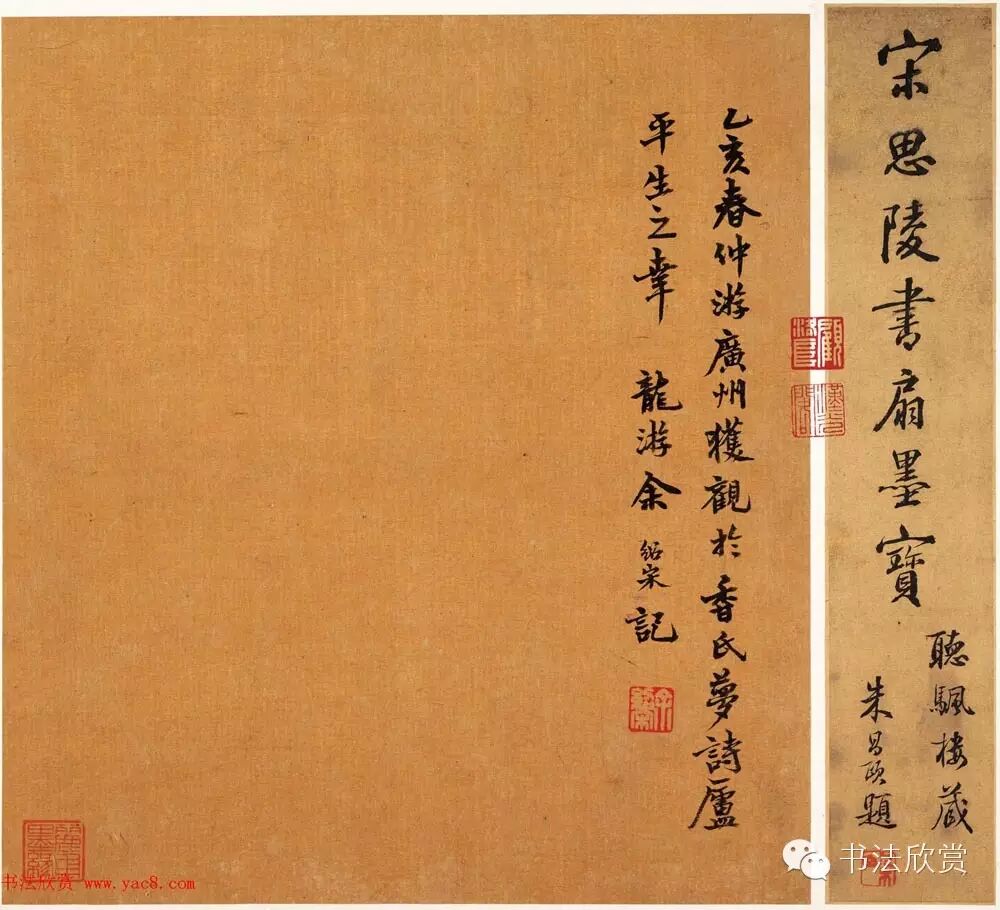 宋思陵書扇墨寶
聽颿樓藏
朱昌頤題
乙亥春仲游廣州獲觀於香氏夢詩廬
平生之幸 龍游余紹宋記
书法欣赏
书法欣赏 www.yac8.com